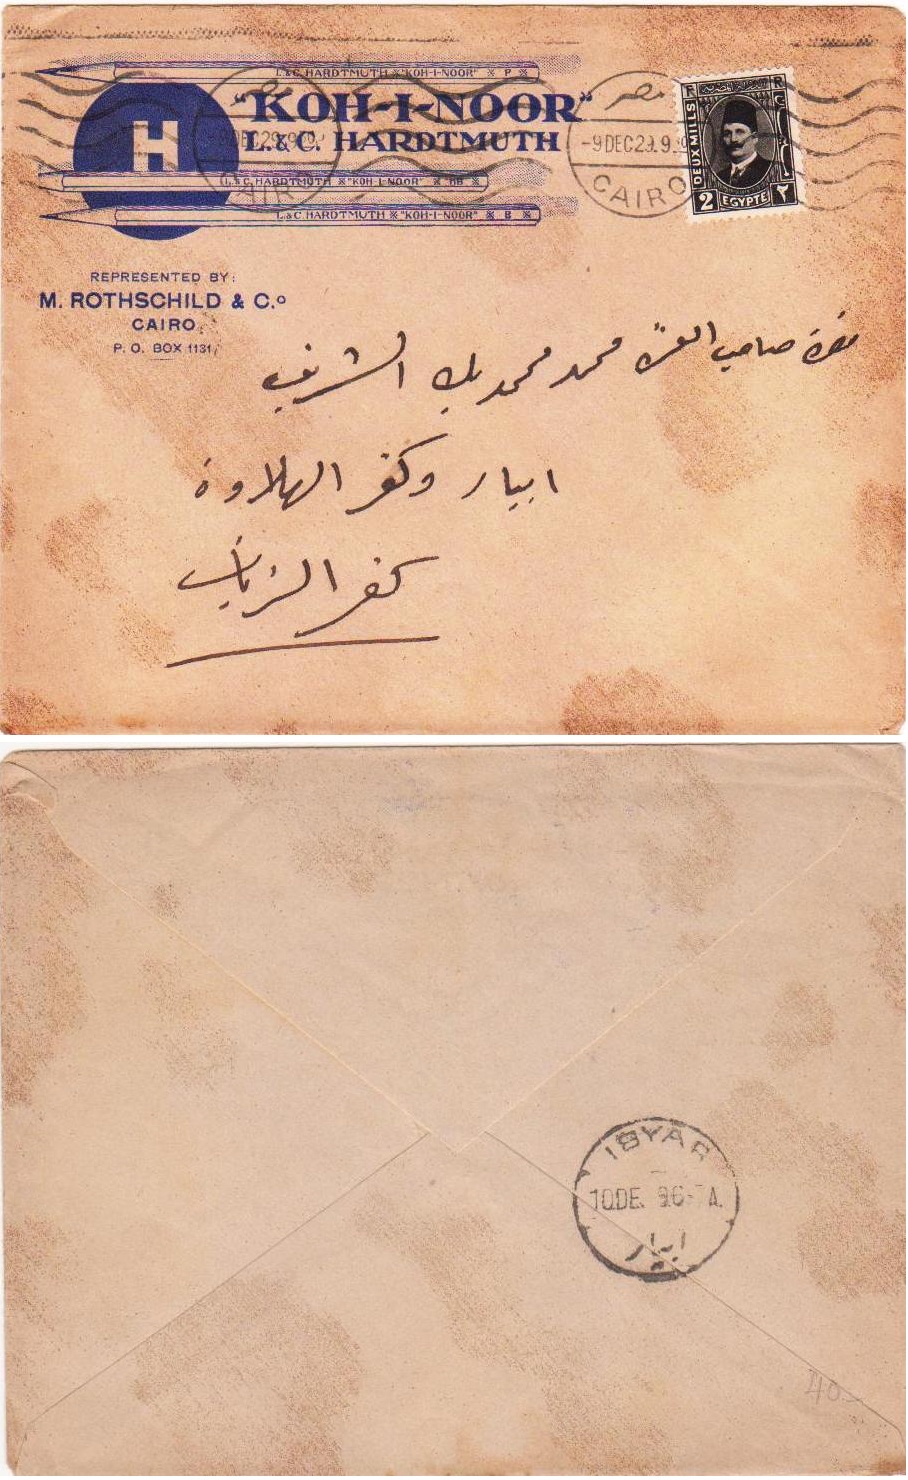 L.&C. HARDTMUTH "KOH-I-NOOR" P
"KOH-I-NOOR"
H
L.&C. HARDTMUTH
L.&C. HARDTMUTH "KOH-I-NOOR" HB
L.&C. HARDTMUTH "KOH-I-NOOR" B
REPRESENTED BY:
M. ROTHSCHILD & C.º
CAIRO.
P. O. BOX 1131,
مصر
-9DEC29.9
CAIRO
DEUX MILLS
2 EGYPTE ٢
حضرة صاحب العزة محمد محمد بك الشريف
ابيار وكفر الهلاوة
كفر الزيات
IBYAR
10.DE.
ابيار
40.-